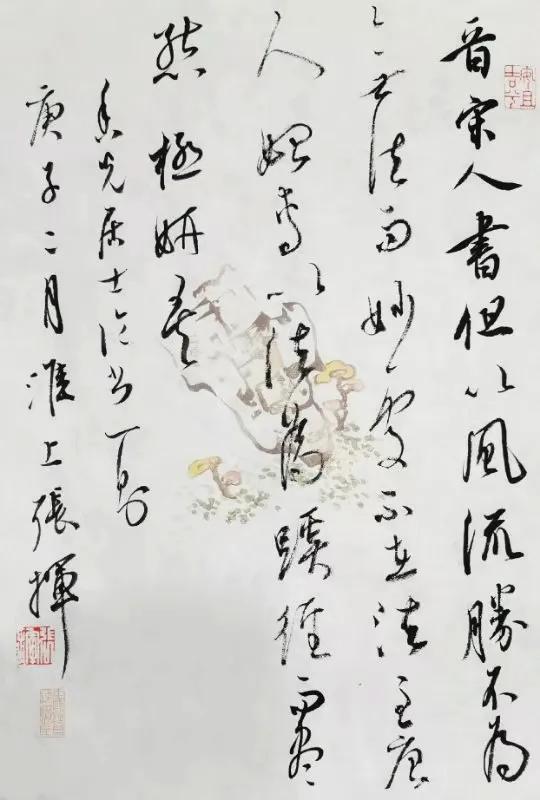 晋宋人書但以風流勝不為
無法而妙處不在法至唐
人始專以法為蹊徑而盡
態極妍矣
香光居士論書一則
庚子二月淮上張揮